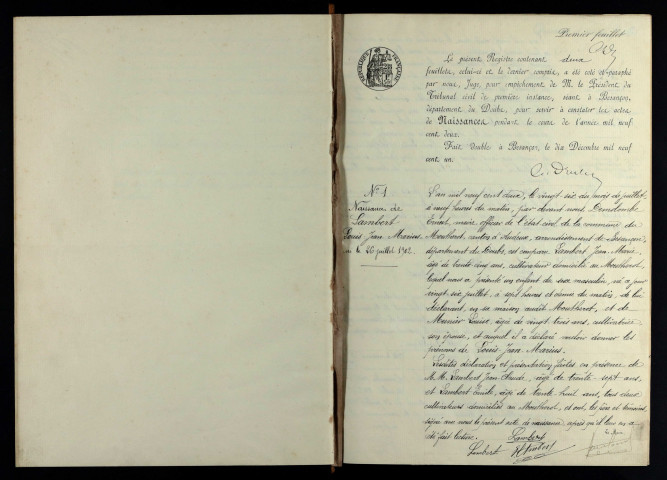 Premier feuillet
RÉPUBLIQUE FRANÇAISE
Le présent Registre contenant deux
feuillets, celui-ci et le dernier compris, a été coté et paraphé
par nous, Juge, pour empêchement de M. le Président du
Tribunal civil de première instance, séant à Besançon,
département du Doubs, pour servir à constater les actes
de Naissances pendant le cours de l'année mil neuf
cent deux.
Fait double à Besançon, le dix Décembre mil neuf
cent un.
N° 1
Naissance de
Lambert
Louis Jean Marius
né le 26 juillet 1902.
L'an mil neuf cent deux, le vingt six du mois de juillet
à neuf heures du matin, par devant nous
maire officier de l'état civil de la commune de
Montherot, canton d'Audeux, arrondissement de Besançon,
département du Doubs, est comparu Lambert Jean Marie,
âgé de trente cinq ans, cultivateur domicilié au Montherot,
lequel nous a présenté un enfant du sexe masculin, né ce jour
vingt six juillet, à sept heures et demie du matin, de lui
déclarant, en sa maison audit Montherot, et de
Louise, âgée de vingt trois ans, cultivatrice
son épouse, et auquel il a déclaré vouloir donner les
prénoms de Louis Jean Marius.
Lesdites déclaration et présentation faites en présence de
M.M. Lambert Jean Claude, âgé de trente sept ans
et Lambert Emile, âgé de trente huit ans, tous deux
cultivateurs domiciliés au Montherot, et ont, les père et témoins,
signé avec nous le présent acte de naissance, après qu'il leur en a
été fait lecture.
Lambert
Le Maire
Lambert